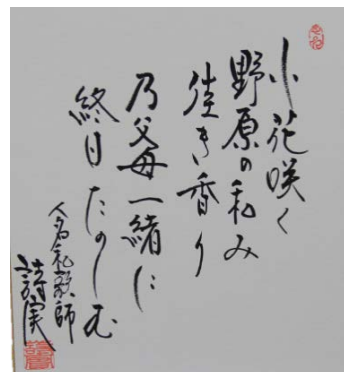 小花咲く
野原の和み
佳き香り
乃父母一緒に
終日たのしむ
人名和歌師
詩実